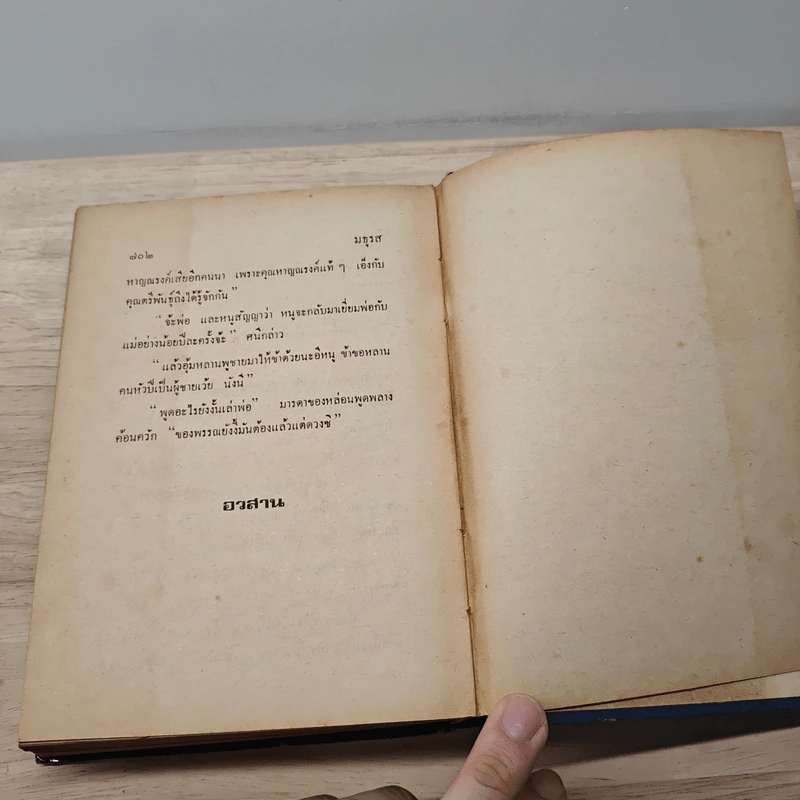 ๗๐๒ มธุรส
หาญณรงค์เสียอีกคนนา เพราะคุณหาญณรงค์แท้ ๆ เอ็งกับ
คุณตรีพันธุ์ถึงได้รู้จักกัน”
“จ้ะพ่อ และหนูสัญญาว่า หนูจะกลับมาเยี่ยมพ่อกับ
แม่อย่างน้อยปีละครั้งจ้ะ” ศนีกล่าว
“แล้วอุ้มหลานพูชายมาให้ข้าด้วยนะอีหนู ข้าขอหลาน
คนหัวปีเป็นผู้ชายเว้ย นังนี”
“พูดอะไรยังงั้นเล่าพ่อ” มารดาของหล่อนพูดพลาง
ค้อนควัก “ของพรรณยังงี้มันต้องแล้วแต่ดวงซิ”
อวสาน